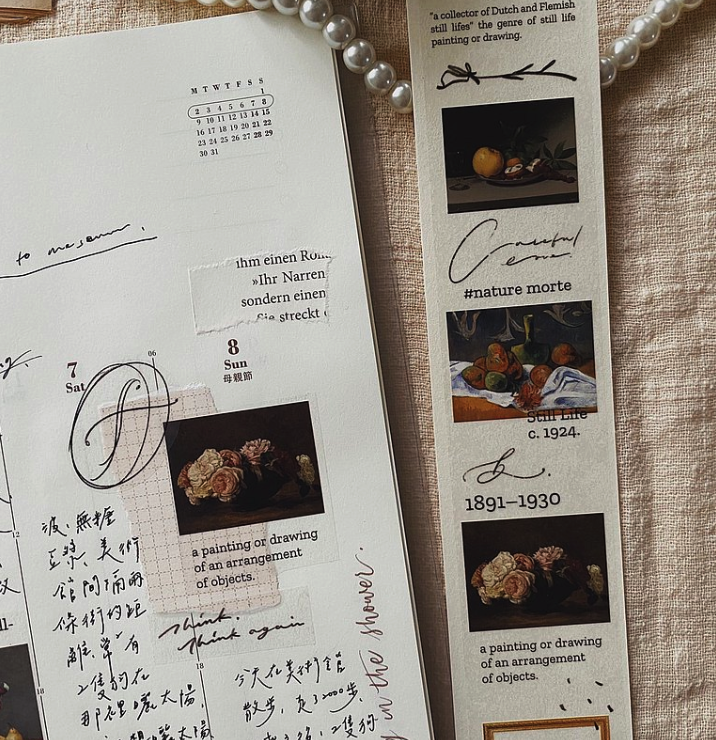 to museum.
M T W T F S S
1
2 3 4 5 6 7 8
9 10 11 12 13 14 15
16 17 18 19 20 21 22
23 24 25 26 27 28 29
30 31
ihm einen
»Ihr Narren
sondern einen
Sie streckt
7
Sat
06
8
Sun
母親節
a painting or drawing
of an arrangement
of objects.
think.
think again
無糖
豆漿、美術
館 間隔兩
條街的距
離、草 有
2隻狗在
那裡曬太陽,
曬太陽
12
18
18
今天在美術館
散步,走了2000步,
2隻狗
in the shower.
"a collector of Dutch and Flemish
still lifes" the genre of still life
painting or drawing.
#nature morte
Still Life
c. 1924.
1891–1930
a painting or drawing
of an arrangement
of objects.